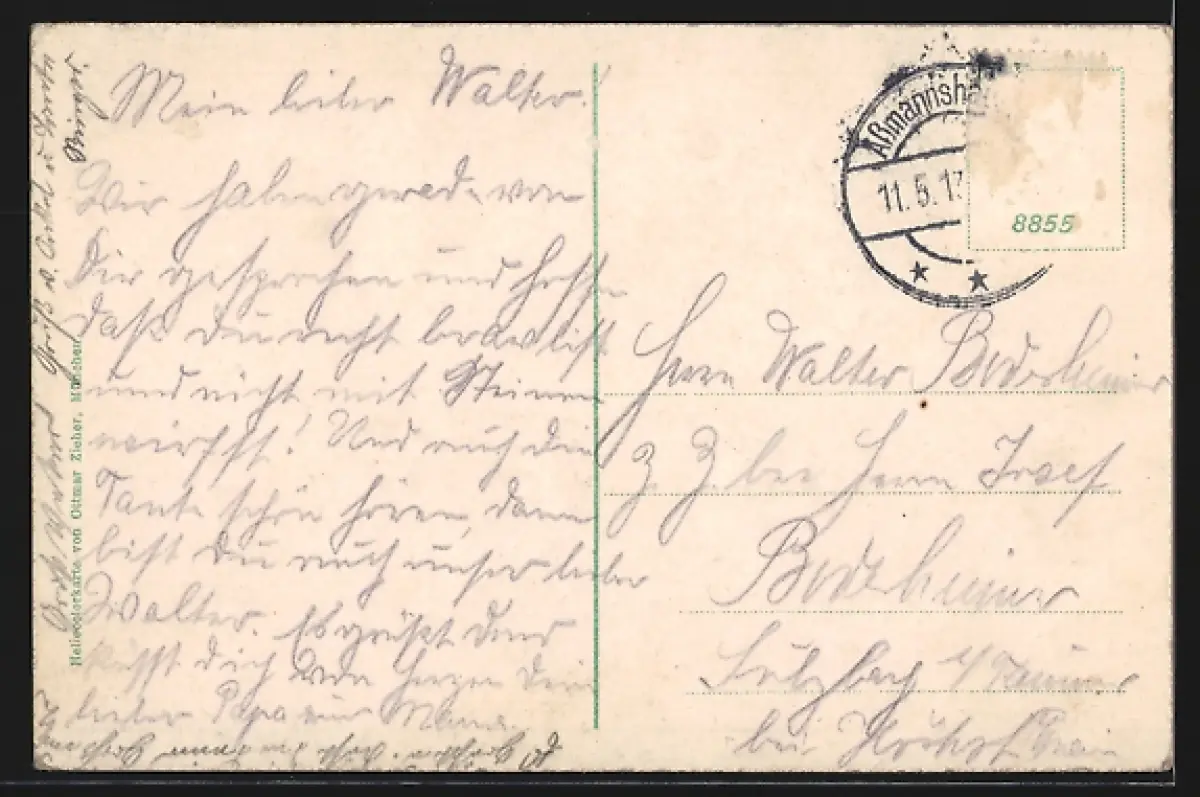 Mein lieber Walter!
Wir haben gerade von
Dir gesprochen und hoffen
daß Du recht brav bist
und nicht mit Steinen
wirfst! Und auch die
Tante schön hören, dann
bist Du auch unser lieber
Walter. Es grüßt und
küsst Dich von Herzen Dein
lieber Papa und Mama.
Gruß v. Onkel u Tante
Heliocolorkarte von Ottmar Zieher, München
Aßmannsha
11.5.13
8855
Herrn Walter Bodenheimer
z. Z. bei Herrn Josef
Bodenheimer
Sulzbach i/Taunus
bei Höchst Main